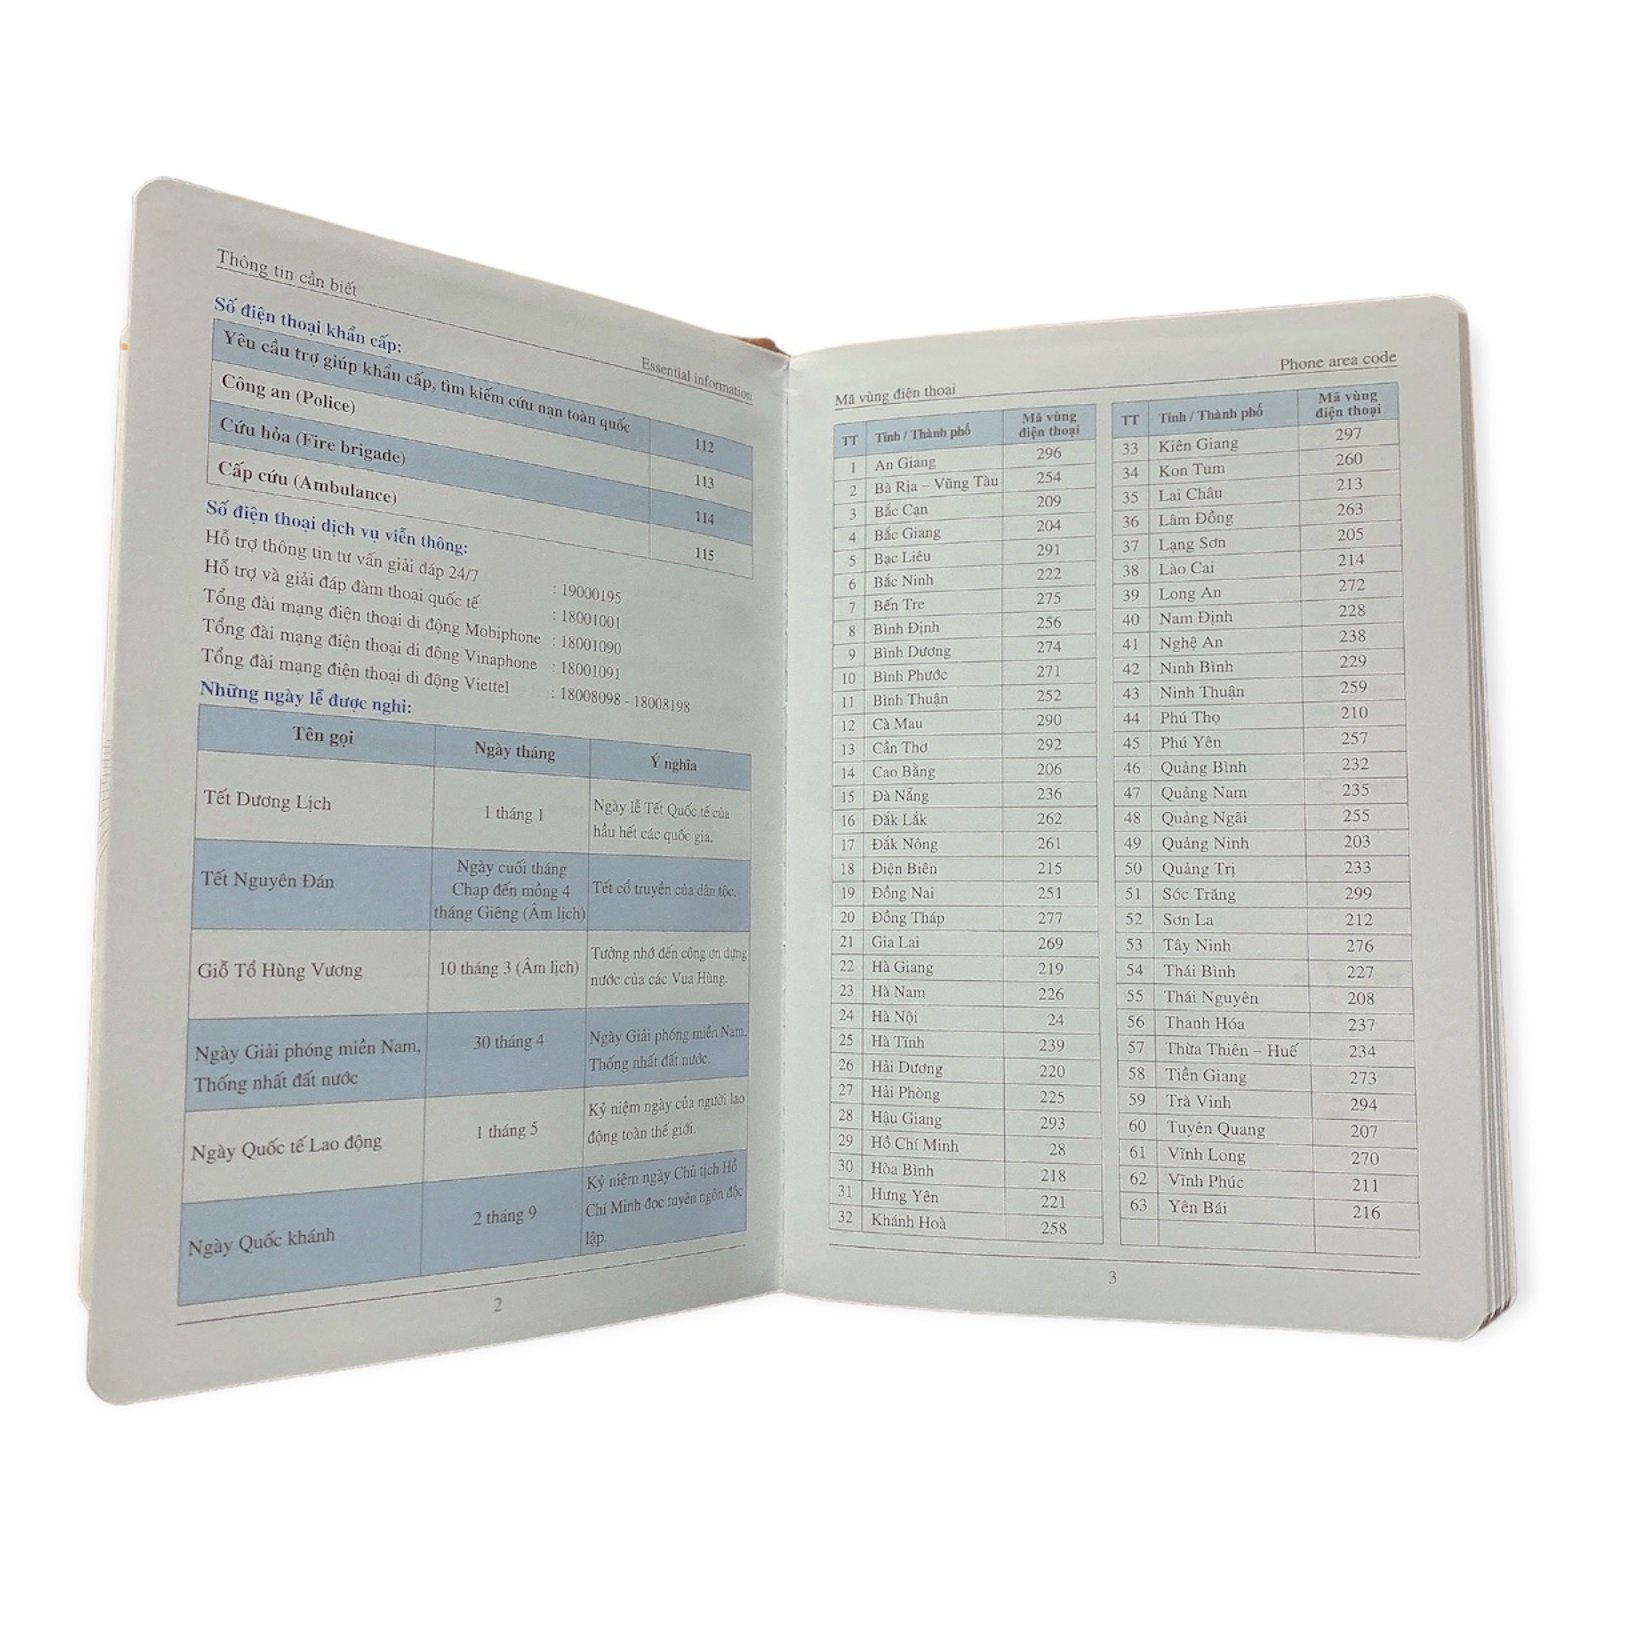 Thông tin cần biết
Essential information
Số điện thoại khẩn cấp:
Yêu cầu trợ giúp khẩn cấp, tìm kiếm cứu nạn toàn quốc 112
Công an (Police) 113
Cứu hỏa (Fire brigade) 114
Cấp cứu (Ambulance) 115
Số điện thoại dịch vụ viễn thông:
Hỗ trợ thông tin tư vấn giải đáp 24/7 : 19000195
Hỗ trợ và giải đáp đàm thoại quốc tế : 18001001
Tổng đài mạng điện thoại di động Mobiphone : 18001090
Tổng đài mạng điện thoại di động Vinaphone : 18001091
Tổng đài mạng điện thoại di động Viettel : 18008098 - 18008198
Những ngày lễ được nghỉ:
Tên gọi Ngày tháng Ý nghĩa
Tết Dương Lịch 1 tháng 1 Ngày lễ Tết Quốc tế của
hầu hết các quốc gia.
Tết Nguyên Đán Ngày cuối tháng
Chạp đến mồng 4
tháng Giêng (Âm lịch) Tết cổ truyền của dân tộc.
Giỗ Tổ Hùng Vương 10 tháng 3 (Âm lịch) Tưởng nhớ đến công ơn dựng
nước của các Vua Hùng.
Ngày Giải phóng miền Nam,
Thống nhất đất nước 30 tháng 4 Ngày Giải phóng miền Nam,
Thống nhất đất nước.
Ngày Quốc tế Lao động 1 tháng 5 Kỷ niệm ngày của người lao
động toàn thế giới.
Ngày Quốc khánh 2 tháng 9 Kỷ niệm ngày Chủ tịch Hồ
Chí Minh đọc tuyên ngôn độc
lập.
2
Mã vùng điện thoại
Phone area code
TT Tỉnh / Thành phố Mã vùng
điện thoại
1 An Giang 296
2 Bà Rịa – Vũng Tàu 254
3 Bắc Cạn 209
4 Bắc Giang 204
5 Bạc Liêu 291
6 Bắc Ninh 222
7 Bến Tre 275
8 Bình Định 256
9 Bình Dương 274
10 Bình Phước 271
11 Bình Thuận 252
12 Cà Mau 290
13 Cần Thơ 292
14 Cao Bằng 206
15 Đà Nẵng 236
16 Đắk Lắk 262
17 Đắk Nông 261
18 Điện Biên 215
19 Đồng Nai 251
20 Đồng Tháp 277
21 Gia Lai 269
22 Hà Giang 219
23 Hà Nam 226
24 Hà Nội 24
25 Hà Tĩnh 239
26 Hải Dương 220
27 Hải Phòng 225
28 Hậu Giang 293
29 Hồ Chí Minh 28
30 Hòa Bình 218
31 Hưng Yên 221
32 Khánh Hoà 258
TT Tỉnh / Thành phố Mã vùng
điện thoại
33 Kiên Giang 297
34 Kon Tum 260
35 Lai Châu 213
36 Lâm Đồng 263
37 Lạng Sơn 205
38 Lào Cai 214
39 Long An 272
40 Nam Định 228
41 Nghệ An 238
42 Ninh Bình 229
43 Ninh Thuận 259
44 Phú Thọ 210
45 Phú Yên 257
46 Quảng Bình 232
47 Quảng Nam 235
48 Quảng Ngãi 255
49 Quảng Ninh 203
50 Quảng Trị 233
51 Sóc Trăng 299
52 Sơn La 212
53 Tây Ninh 276
54 Thái Bình 227
55 Thái Nguyên 208
56 Thanh Hóa 237
57 Thừa Thiên – Huế 234
58 Tiền Giang 273
59 Trà Vinh 294
60 Tuyên Quang 207
61 Vĩnh Long 270
62 Vĩnh Phúc 211
63 Yên Bái 216
3